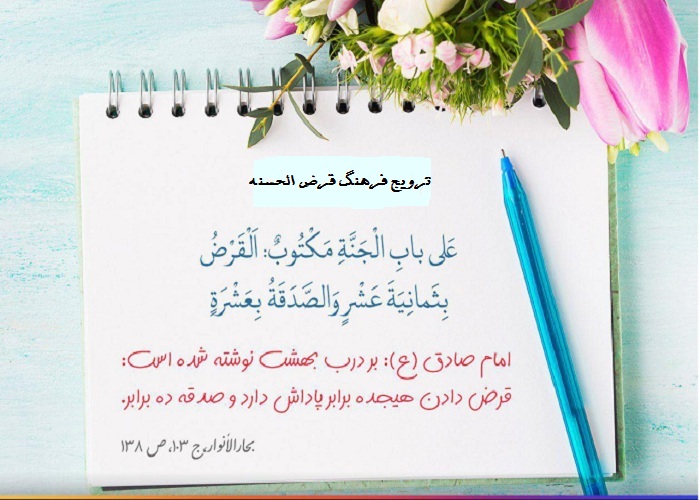 ترویج فرهنگ قرض الحسنه
عَلى بابِ الْجَنَّةِ مَكْتُوبٌ: اَلْقَرْضُ
بِثَمانِيَةَ عَشْرٍ وَالصَّدَقَةُ بِعَشْرَةٍ
امام صادق (ع): بر درب بهشت نوشته شده است:
قرض دادن هیجده برابر پاداش دارد و صدقه ده برابر.
بحارالأنوار، ج ۱۰۳، ص ۱۳۸